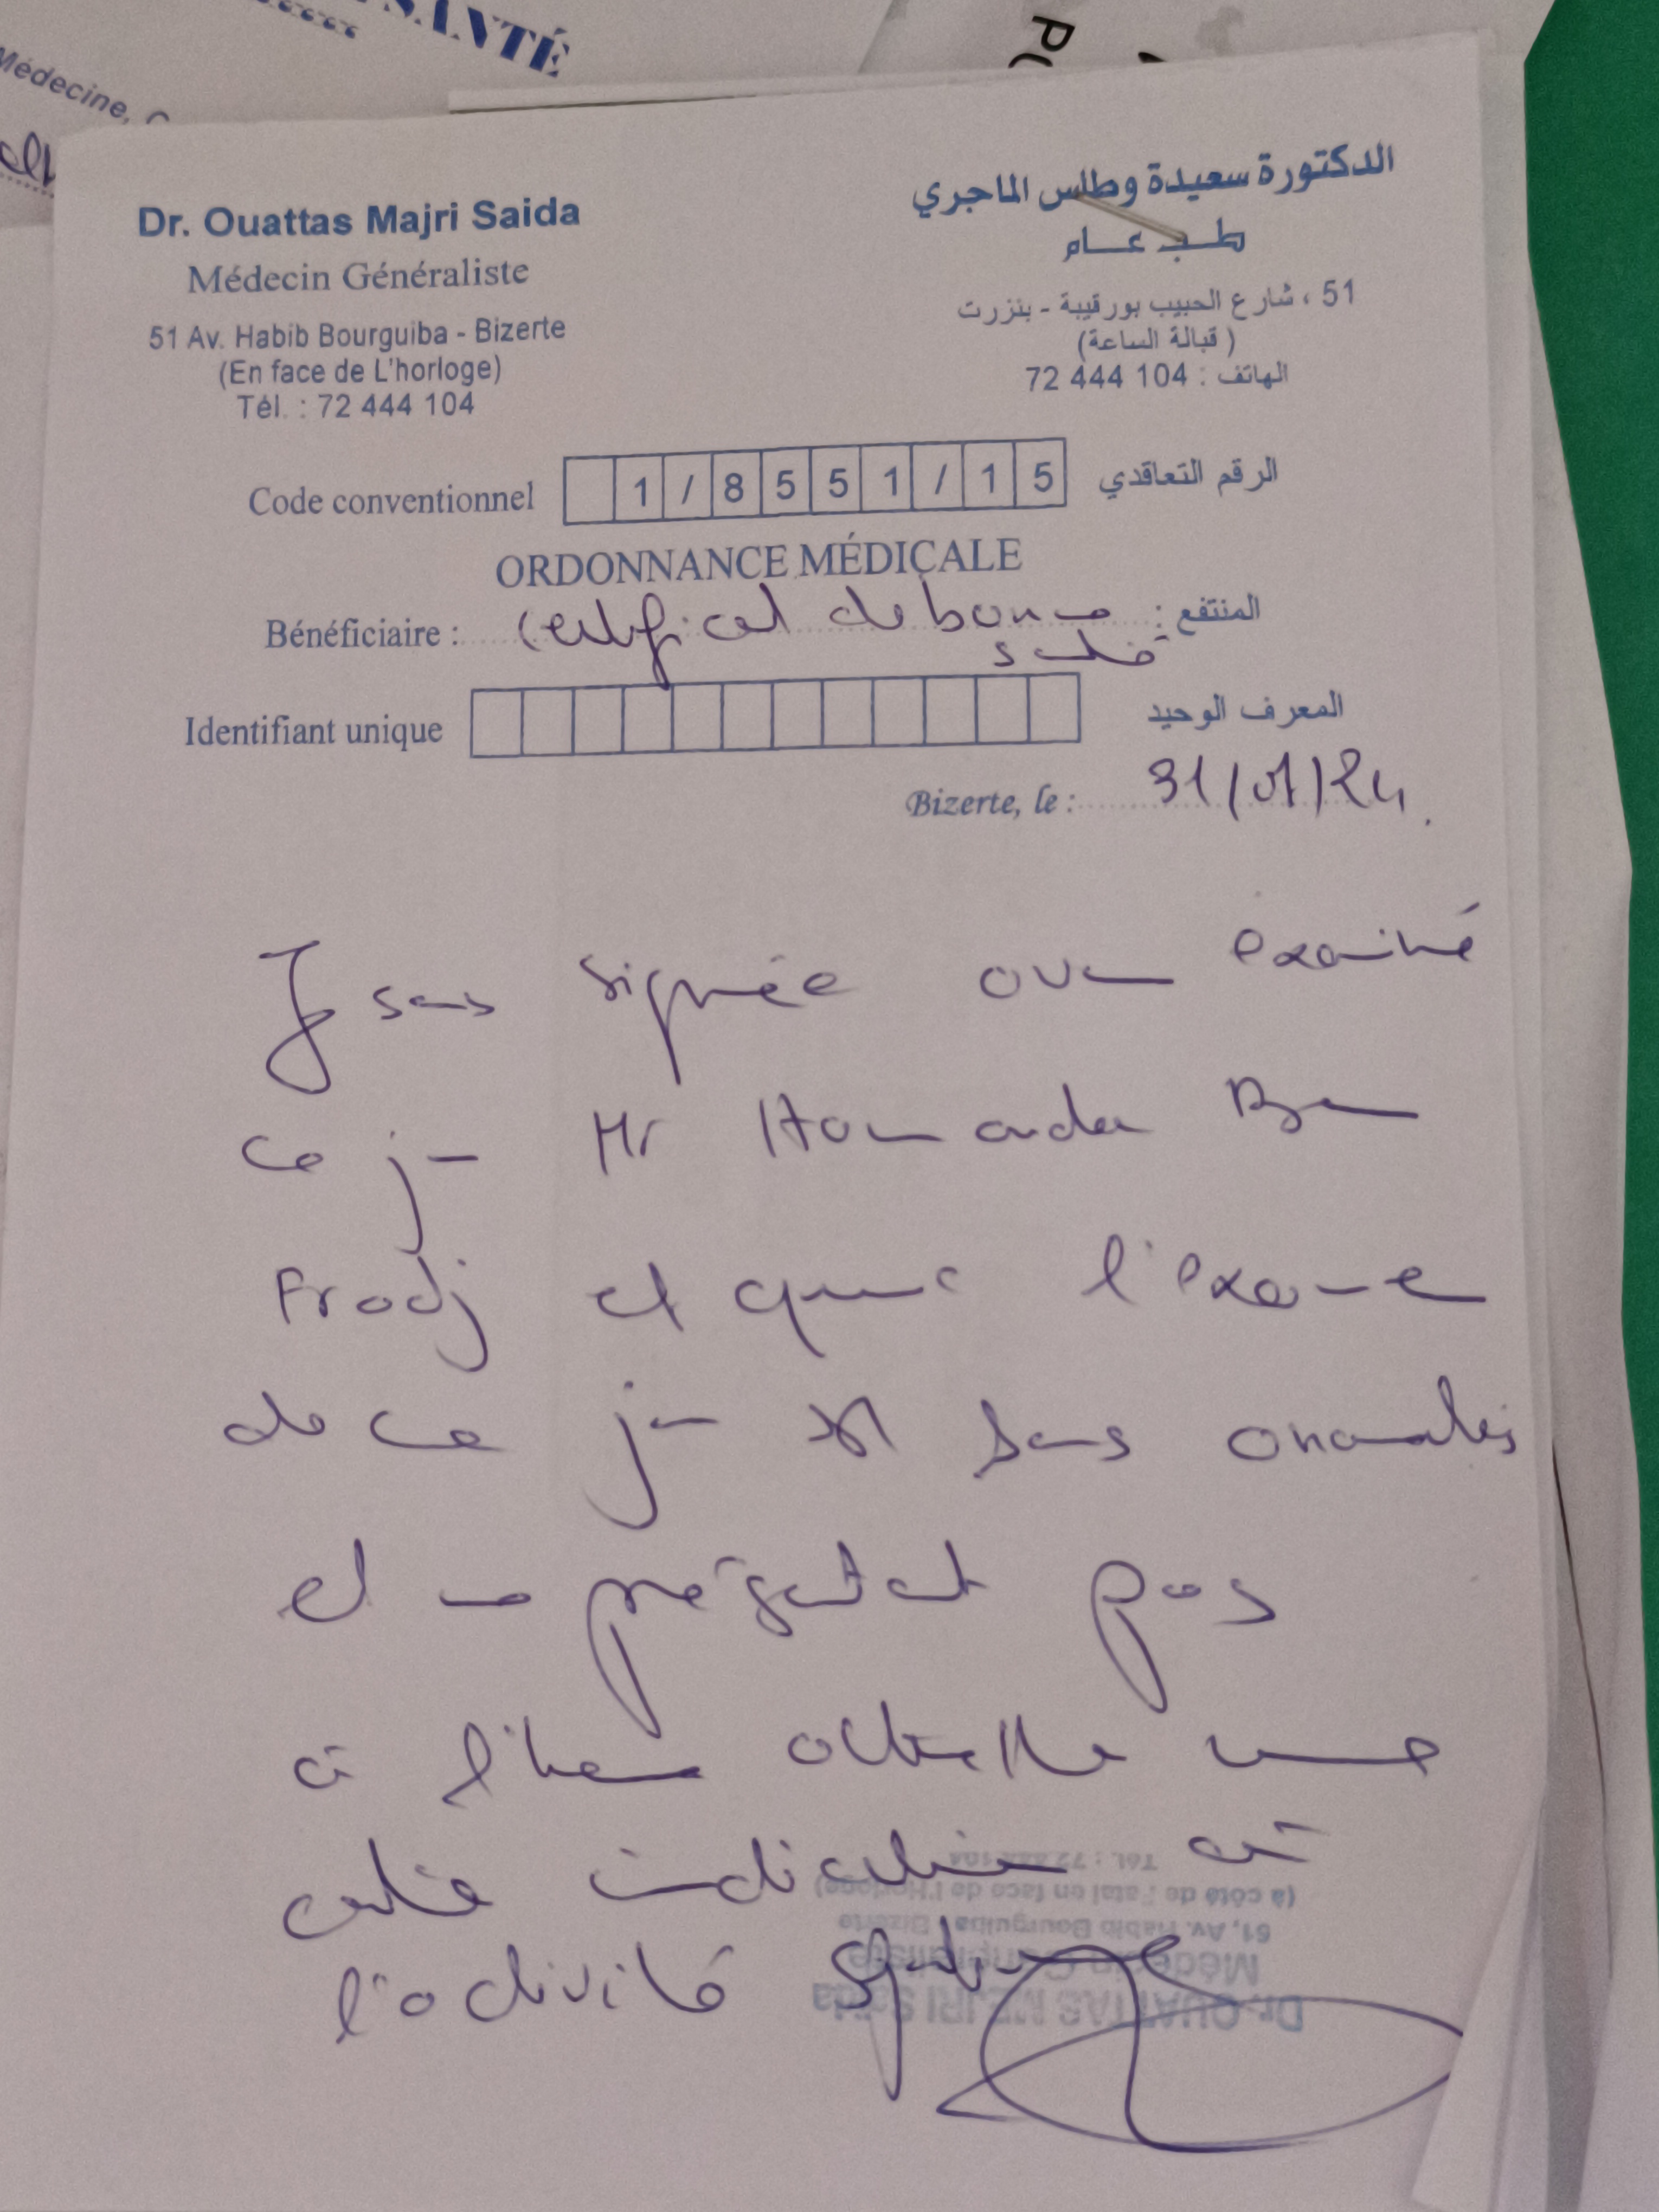 SANTÉ
Médecine,
Dr. Ouattas Majri Saida
Médecin Généraliste
51 Av. Habib Bourguiba - Bizerte
(En face de L'horloge)
Tél. : 72 444 104
الدكتورة سعيدة وطاس الماجري
طب عام
51 ، شارع الحبيب بورقيبة - بنزرت
(قبالة الساعة)
الهاتف : 104 444 72
Code conventionnel 1/8551/15 الرقم التعاقدي
ORDONNANCE MÉDICALE
Bénéficiaire : Certificat de bonne المنتفع :
santé
Identifiant unique المعرف الوحيد
Bizerte, le : 31/01/24.
Je sous signée avoir examiné
ce jour Mr Hamada Ben
Fradj et que l'examen
de ce jour est sans anomalies
et ne présentant pas
à l'heure actuelle une
contre indication à
l'activité sportive
Dr. OUATTAS MEJRI Saida
Médecin Généraliste
51, Av. Habib Bourguiba - Bizerte
(à côté de l'atal en face de l'Horloge)
Tél. : 72 444 104